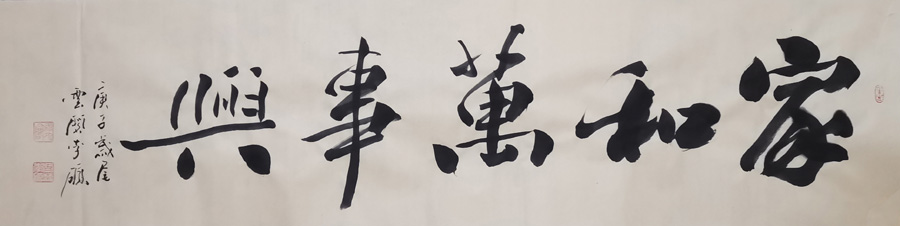 家和萬事興
庚子歲尾
雲廬李